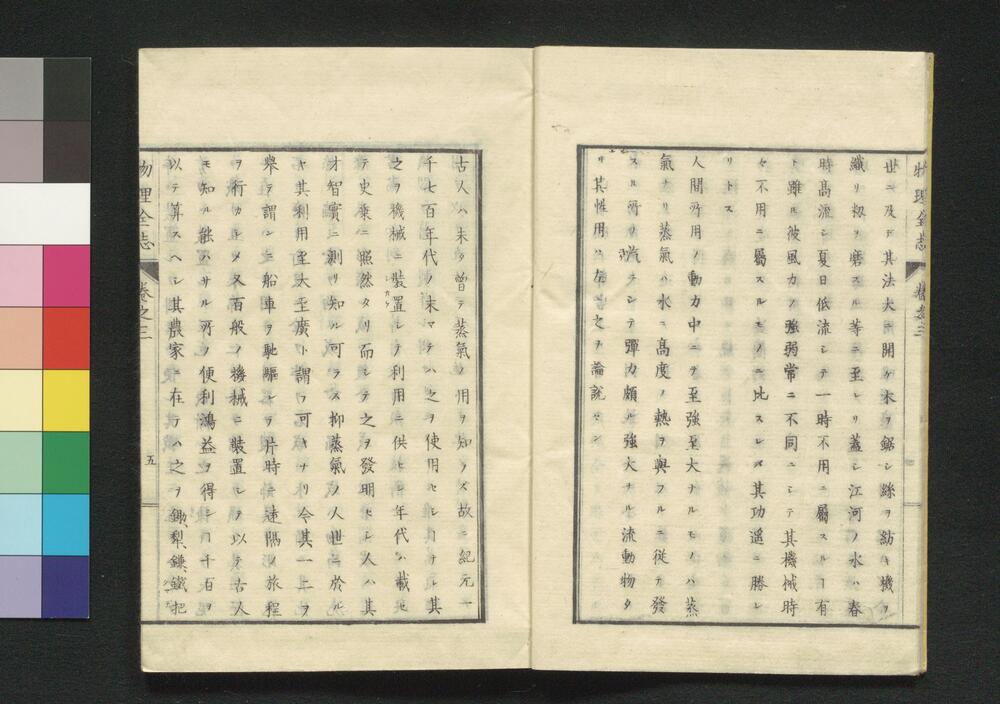 物理全志 卷之三
世ニ及デ其法大ニ開ケ木ヲ鋸シ絲ヲ紡キ機ヲ
織リ籾ヲ磨スル等ニ至レリ蓋シ江河ノ水ハ春
時高流シ夏日低流シテ一時不用ニ屬スルヿ有
ト雖ㇾ彼風力ノ強弱常ニ不同ニシテ其機械時
々不用ニ屬スルモノニ比スレバ其功遥ニ勝レ
リトス
人間所用ノ動力中ニテ至強至大ナルモノハ蒸
氣ナリ蒸氣ハ水ニ高度ノ熱ヲ與フルニ従テ發
スル所ノ汽ニシテ彈力頗ル強大ナル流動物タ
リ其性用ハ左ニ之ヲ論說セン
古人ハ未タ曾テ蒸氣ノ用ヲ知ラス故ニ紀元一
千七百年代ノ末マテハ之ヲ使用セシヿナシ其
之ヲ機械ニ裝置シテ利用ニ供セシ年代ハ載セ
テ史乗ニ照然タリ而シテ之ヲ發明セシ人ハ其
才智實ニ測リ知ル可ラス抑蒸氣ノ人世ニ於ル
ヤ其利用至大至廣ト謂フ可キナリ今其一二ヲ
舉テ謂ンニ船車ヲ馳驅シテ片時ニ遠隔ノ旅程
ヲ行カシメ又百般ノ機械ニ裝置シテ以テ古人
モ知ル能ハサル所ノ便利鴻益ヲ得シヿ千百ヲ
以テ算スヘシ其農家ニ在テハ之ヲ鋤、犁、鎌、鐵把
物理全志 卷之三 五